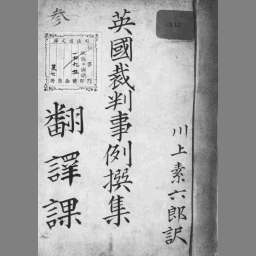 川上素六郎訳
英國裁判事例撰集
翻譯課
参